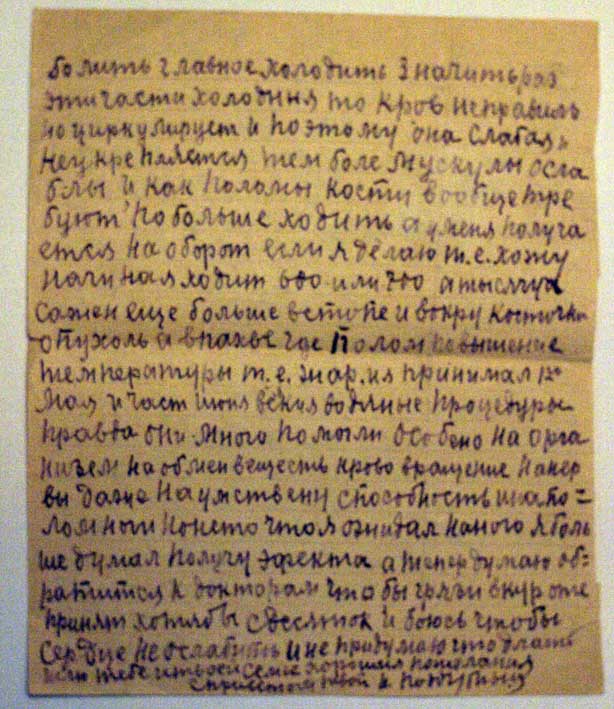 болить главное холодить Значить раз
эти части холодния то кров неправиль
но циркулирует и поэтому она слабая и
неукрепляется тем боле мускулы осла
блы и как поломы кости вообще тре
буют побольше ходить а у меня получа
ется на оборот если я делаю т.е. хожу
начиная ходит 600 или 700 а тысячу
сажен еще больше в стопе и вокру косточки
опухоль а в пахве где полом повышение
температуры т.е. жар. ия принимал
мая и част июня всякия водяные процедуры
правда они много помогли особено на орга
низем на обмен веществ кровообращение на нер
вы даже на умствену способность и на по=
лом ноги но нето что я ожидал на ного я боль
ше думал получу эфекта а теперь думаю об=
ратится к докторам что бы грязи в курорте
принят хотябы сдесяток и боюсь чтобы
сердце не ослабить и не придумаю что делать
тебе и твоей семье хорошия пожелания
твой к Поддубный